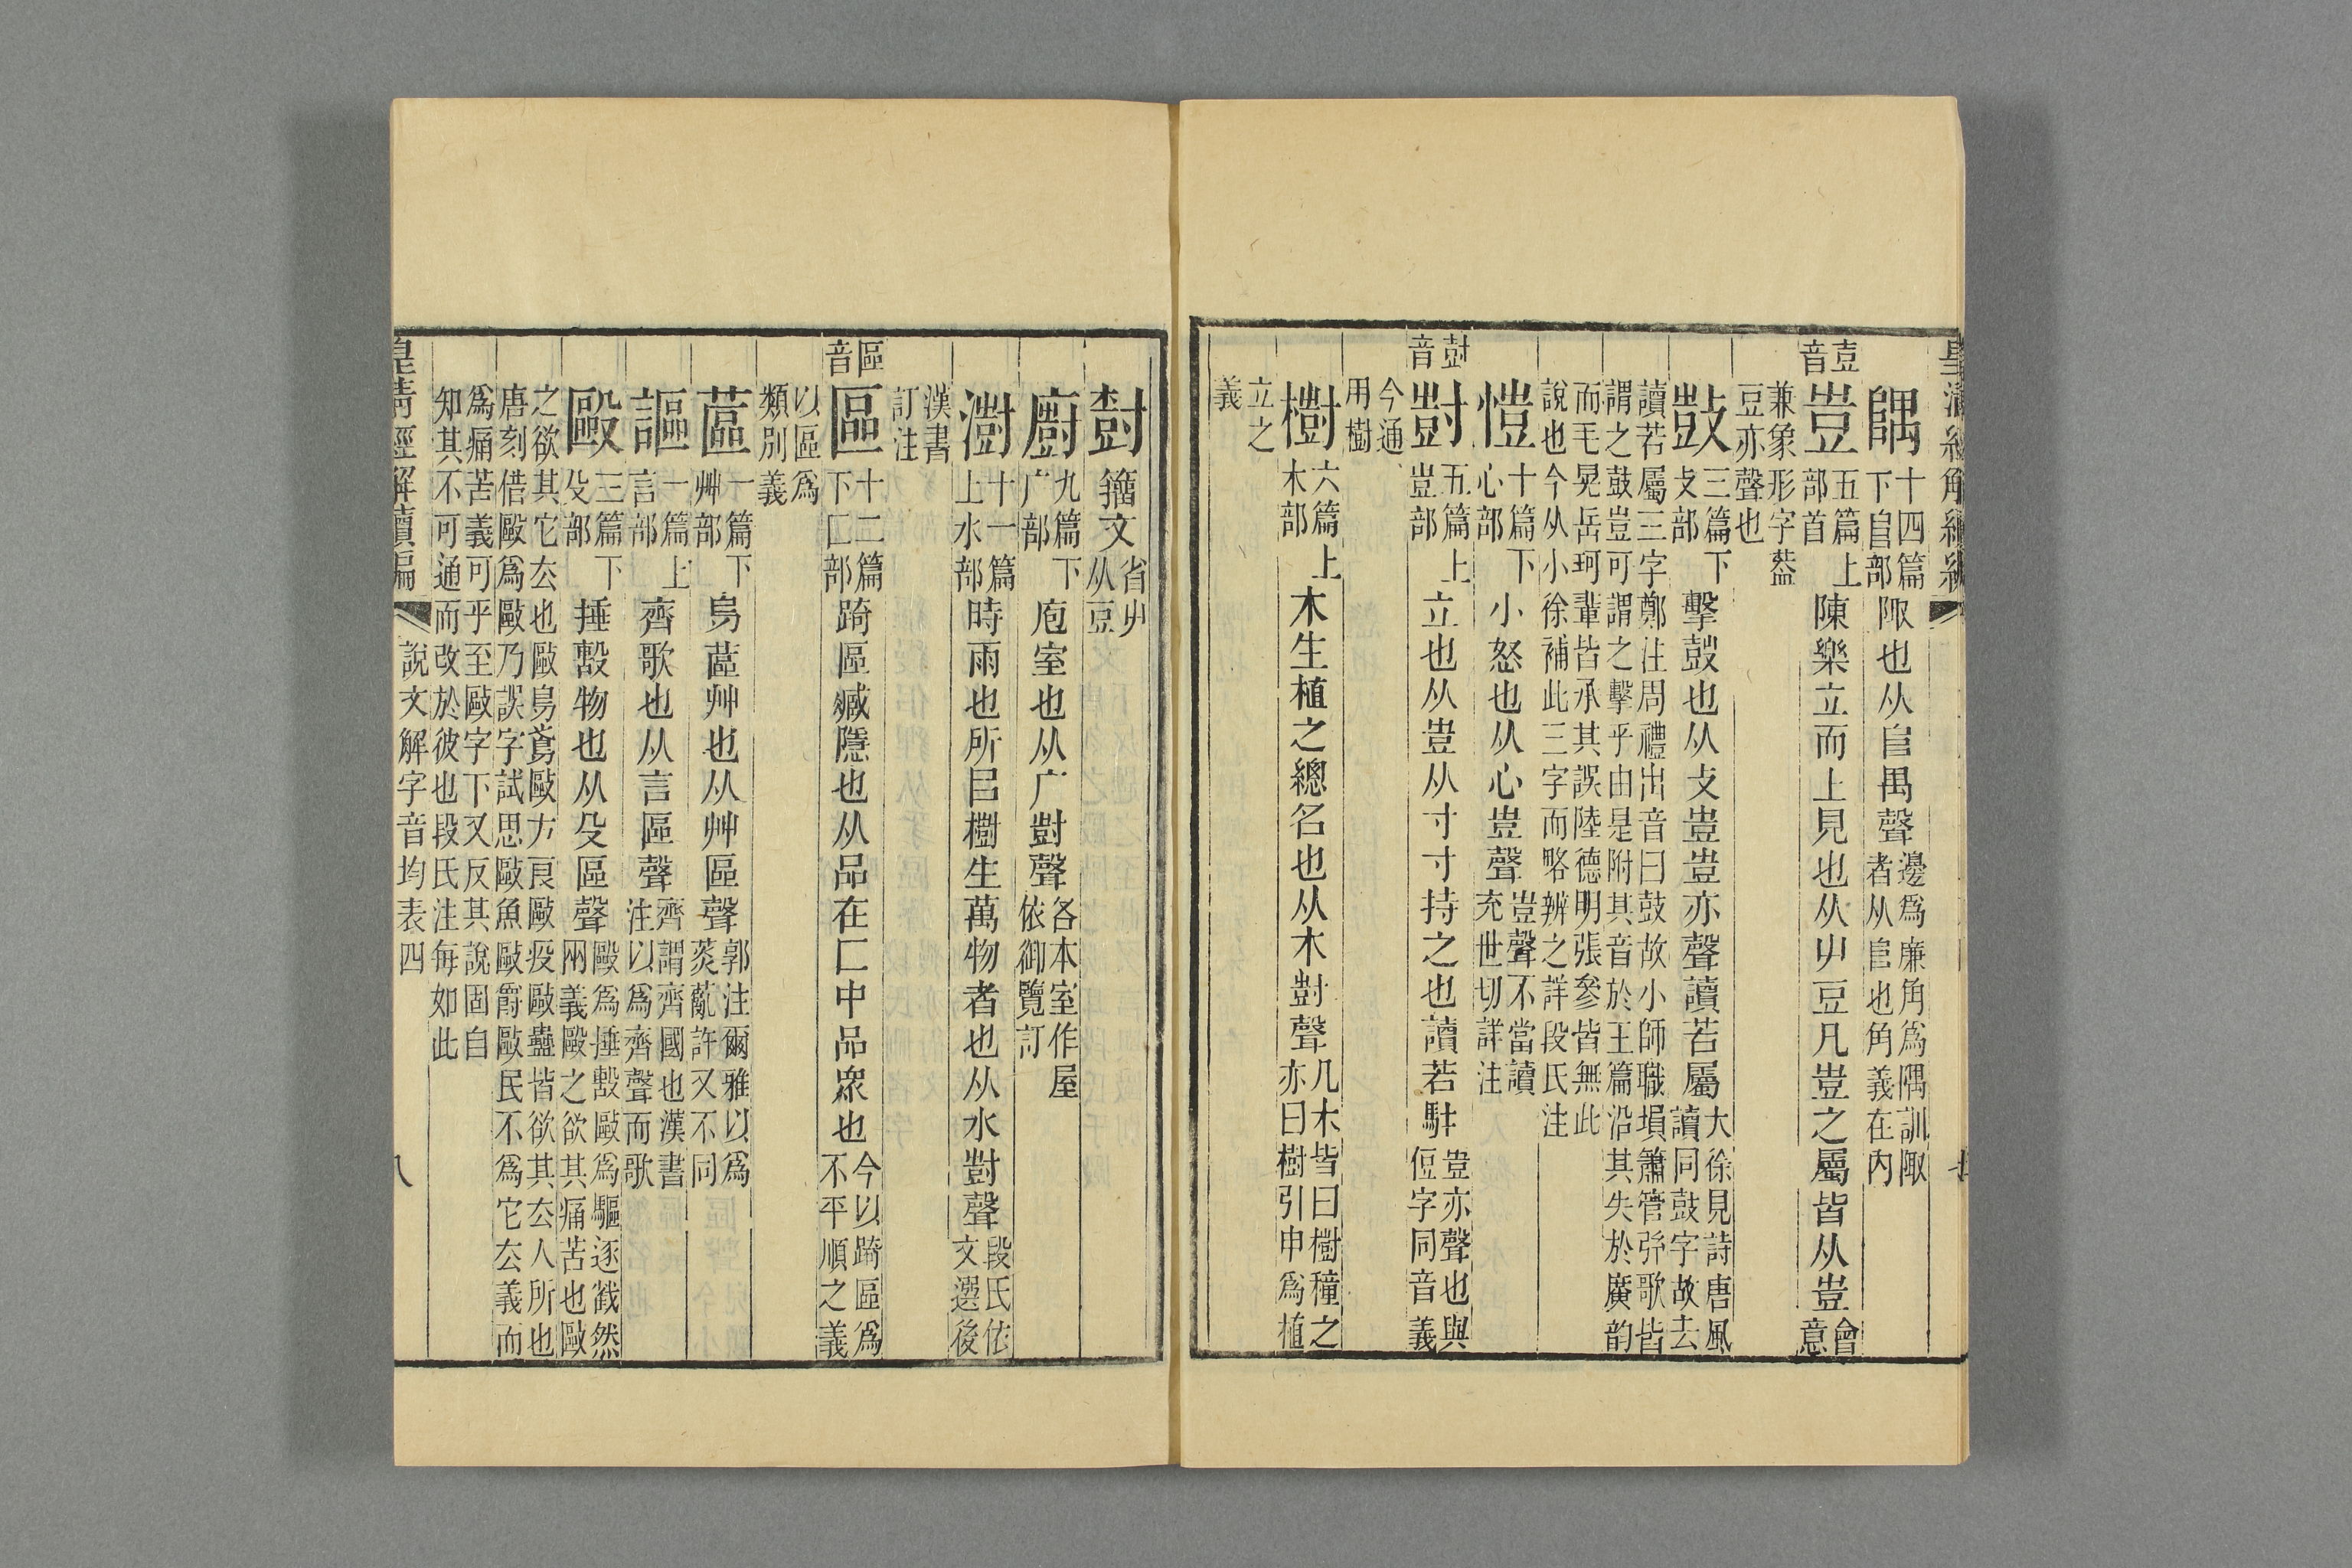 隅十四篇下𨸏部陬也从𨸏禺聲邊爲廉角爲隅訓陬者从𨸏也角義在內
壴音
壴五篇上部首陳樂立而上見也从屮豆凡壴之屬皆从壴會意
兼象形字葢豆亦聲也
鼔三篇下攴部擊鼓也从攴壴壴亦聲讀若屬大徐見詩唐風讀同鼓字故去
讀若屬三字鄭注周禮出音曰鼓故小師職塤簫管弦歌皆謂之鼓豈可謂之擊乎由是附其音於王篇沿其失於廣韵
而毛晃岳珂輩皆承其誤陸德明張參皆無此說也今从小徐補此三字而略辨之詳段氏注
愷十篇下心部小怒也从心壴聲壴聲不當讀充世切詳注
尌音
尌五篇上壴部立也从壴从寸寸持之也讀若駐壴亦聲也與侸字同音義
今通用樹
樹六篇上木部木生植之總名也从木尌聲凡木皆曰樹穜之亦曰樹引申爲植
立之義
尌籒文省屮从豆
廚九篇下广部庖室也从广尌聲各本室作屋依御覽訂
澍十一篇上水部時雨也所㠯樹生萬物者也从水尌聲段氏依文選後
漢書訂注
區音
區十二篇下匚部踦區臧隱也从品在匚中品衆也今以踦區爲不平順之義
以區爲類別義
蓲一篇下艸部烏蓲艸也从艸區聲郭注爾雅以爲菼薍許又不同
謳一篇上言部齊歌也从言區聲齊謂齊國也漢書注以爲齊聲而歌
毆三篇下殳部捶毄物也从殳區聲毆爲捶毄敺爲驅逐截然兩義毆之欲其痛苦也敺
之欲其它去也敺烏鳶敺方良敺疫敺蠱皆欲其去人所也唐刻借敺爲毆乃誤字試思敺魚敺爵敺民不爲它去義而
爲痛苦義可乎至敺字下又反其說固自知其不可通而改於彼也段氏注每如此
皇清經解續編
說文解字音均表四
八